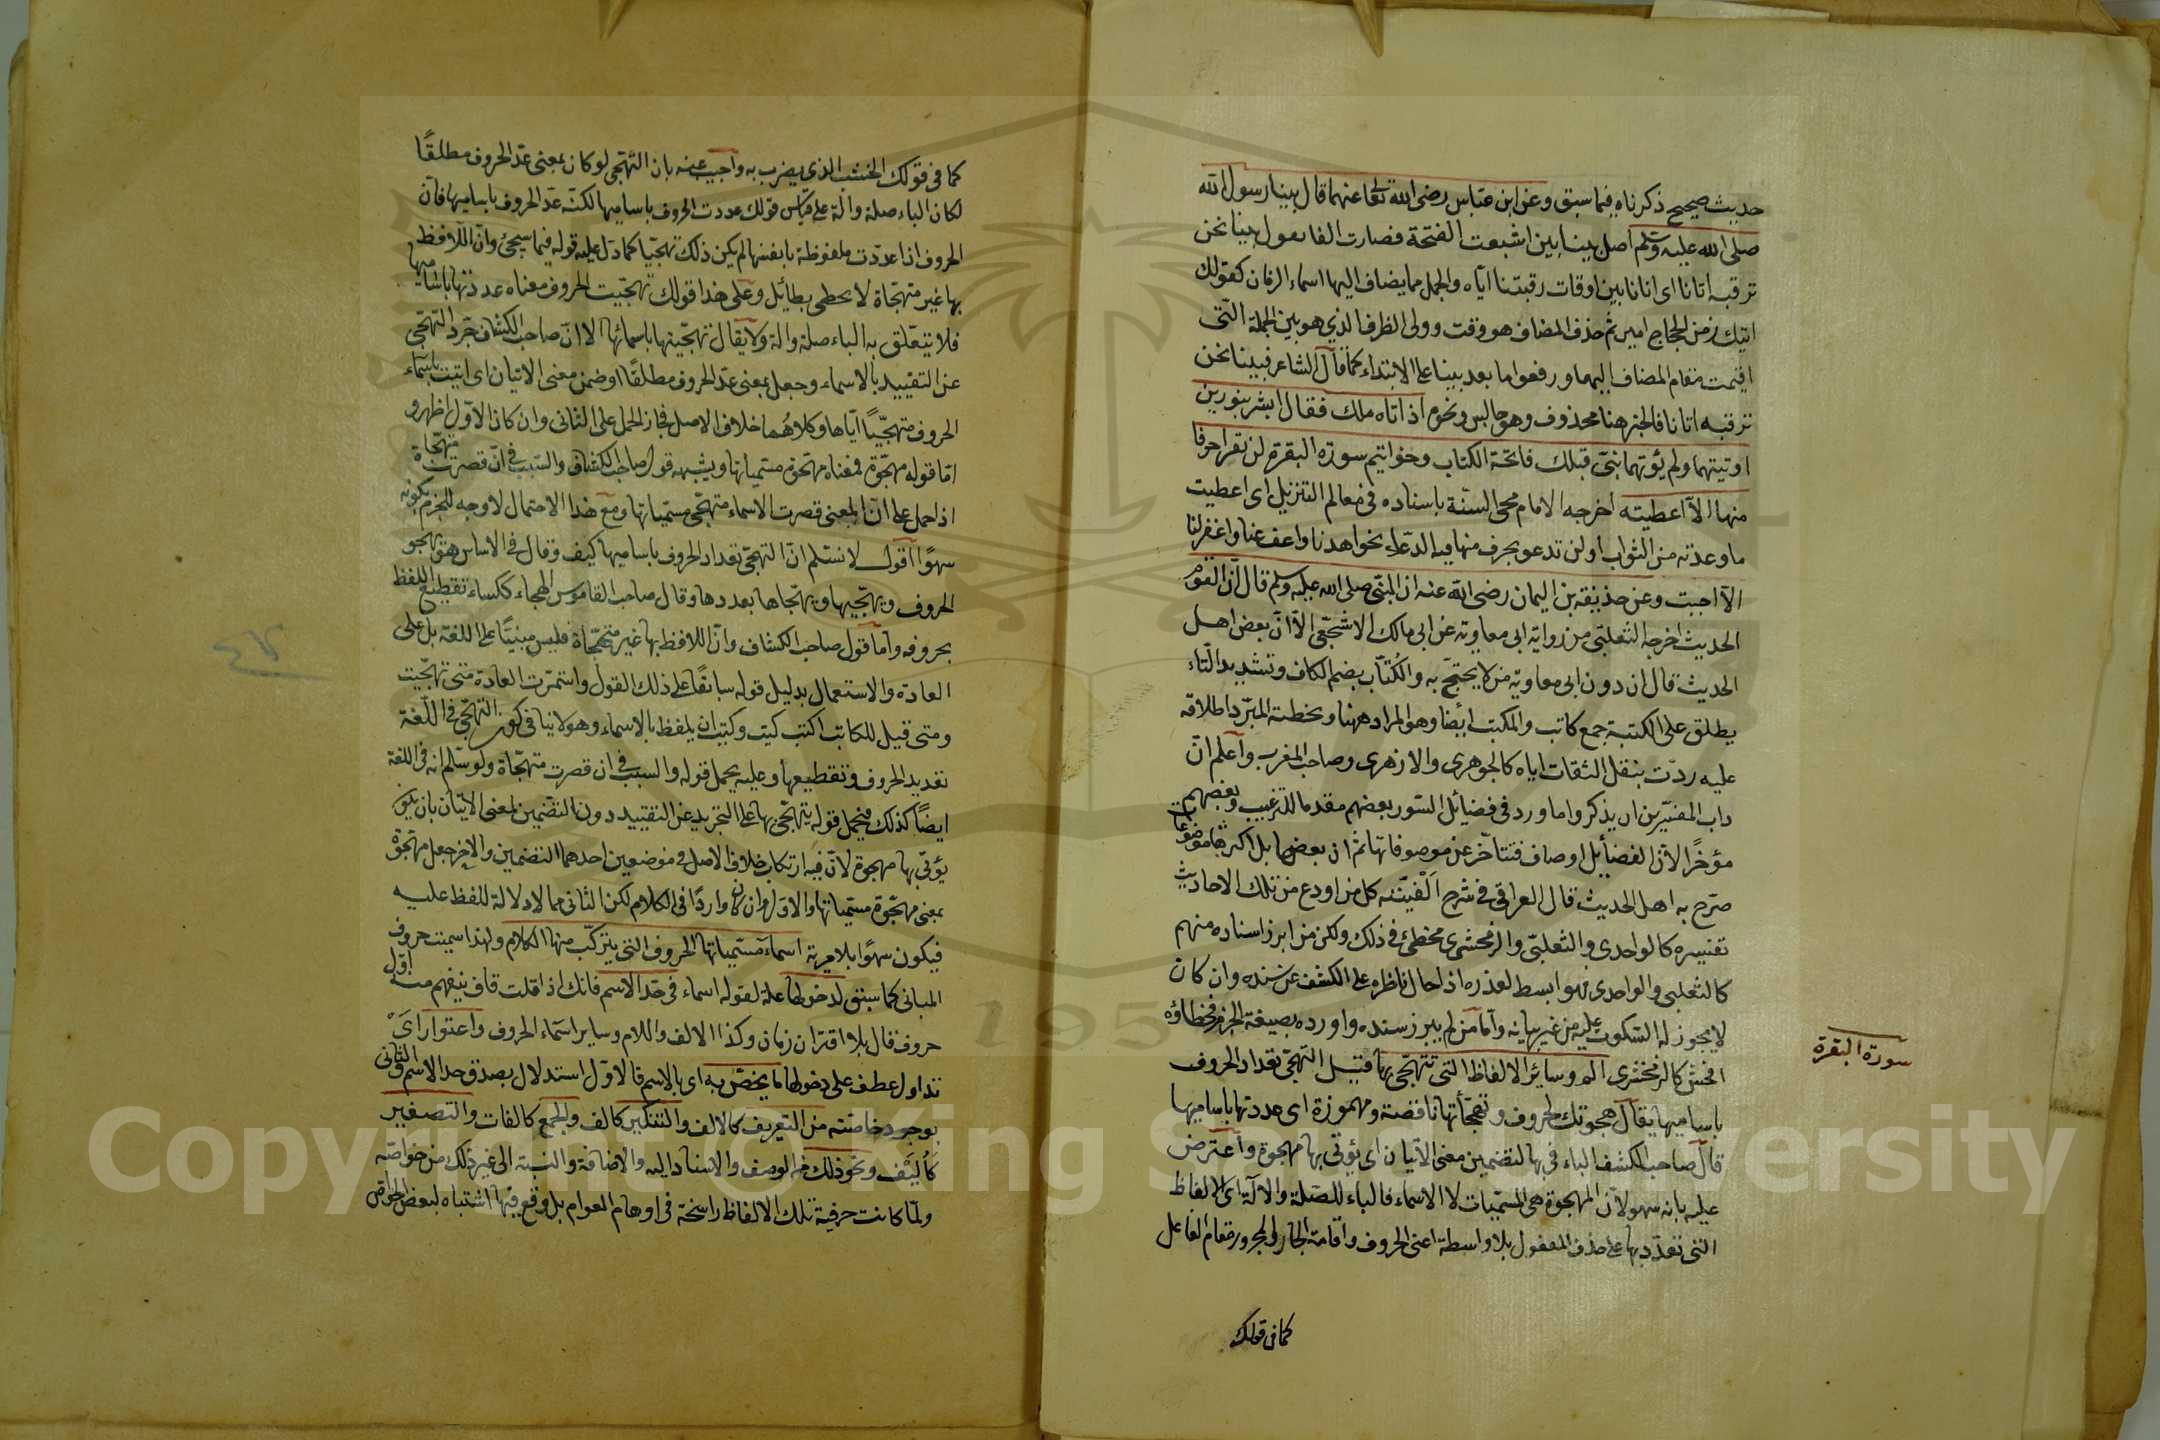 حديث صحيح ذكرناه فيما سبق وعن ابن عباس رضى الله تعالى عنهما قال بينا رسول الله
صلى الله عليه وسلم اصل بينا بين اشبعت الفتحة فصارت الفا يقول بينا نحن
نرقبه اتانا اى اتانا بين اوقات رقبتنا اياه والجمل مما يضاف اليها اسماء الزمان كقولك
اتيتك زمن الحجاج امير ثم حذف المضاف هو وقت وولى الظرف الذي هو بين الجملة التى
اقيمت مقام المضاف اليها ورفعوا ما بعد بينا على الابتداء كما قال الشاعر فبينا نحن
نرقبه اتانا فالخبر هنا محذوف وهو جالس ونحوه اذ اتاه ملك فقال ابشر بنورين
اوتيتهما ولم يؤتهما نبى قبلك فاتحة الكتاب وخواتيم سورة البقرة لن تقرا حرفا
منها الا اعطيته اخرجه الامام محى السنة باسناده فى معالم التنزيل اى اعطيت
ما وعدته من الثواب او لن تدعو بحرف منها فيه الدعاء نحو اهدنا واعف عنا واغفر لنا
الا اجبت وعن حذيفة بن اليمان رضى الله عنه ان النبى صلى الله عليه وسلم قال ان القوم
الحديث اخرجه الثعلبى من رواية ابى معاوية عن ابى مالك الاشجعى الا ان بعض اهل
الحديث قال ان دون ابى معاوية من لا يحتج به والكتاب بضم الكاف وتشديد التاء
يطلق على الكتبة جمع كاتب والمكتب ايضا وهو المراد ههنا وتخطئة المبرد اطلاقه
عليه ردت بنقل الثقات اياه كالجوهرى والازهرى وصاحب المغرب واعلم ان
داب المفسرين ان يذكروا ما ورد فى فضائل السور بعضهم مقدما للترغيب وبعضهم
مؤخرا لان الفضائل اوصاف فتتاخر عن موصوفاتها ثم ان بعضها بل اكثرها موضوعات
صرح به اهل الحديث قال العراقى فى شرح الفيته كل من اودع من تلك الاحاديث
تفسيره كالواحدى والثعلبى والزمخشرى مخطئ فى ذلك ولكن من ابرز اسناده منهم
كالثعلبى والواحدى فهو ابسط لعذره اذ احال ناظره على الكشف عن سنده وان كان
لا يجوز له السكوت عليه من غير بيانه واما من لم يبرز سنده واورده بصيغة الجزم فخطاؤه
افحش كالزمخشرى الم وسائر الالفاظ التى تتهجى بها قيل التهجى تعداد الحروف
باساميها يقال هجوتك الحروف وتهجأتها ناقصة ومهموزة اى عددتها باساميها
قال صاحب الكشف الباء فى بها لتضمين معنى الاتيان اى يؤتى بها مهجوة واعترض
عليه بانه سهو لان المهجوة هى المسميات لا الاسماء فالباء للصلة والآلة اى الالفاظ
التى تعدد بها على حذف المفعول بلا واسطة اعنى الحروف واقامة الجار والمجرور مقام الفاعل
كما فى قولك
سورة البقرة
كما فى قولك الخشب الذى يضرب به واجيب عنه بان التهجى لو كان بمعنى عد الحروف مطلقا
لكان الباء صلة وآلة على قياس قولك عددت الحروف باساميها لكنه عد الحروف باساميها فان
الحروف اذا عددت ملفوظة بانفسها لم يكن ذلك تهجيا كما دل عليه قوله فيما سيجئ وان اللافظ
بها غير متهجاة لا يحظى بطائل وعلى هذا قولك تهجيت الحروف معناه عددتها باساميها
فلا يتعلق به الباء صلة وآلة ولا يقال تهجيتها باسمائها الا ان صاحب الكشاف جرد التهجى
عن التقييد بالاسماء وجعل بمعنى عد الحروف مطلقا او ضمن معنى الاتيان اى اتيت باسماء
الحروف متهجيا اياها وكلاهما خلاف الاصل فجاز الحمل على الثانى وان كان الاول اظهر و
اما قوله مهجوة فمعناه مهجوة مسمياتها ويشبهه قول صاحب الكشاف والسبب فى ان قصرت متهجاة
اذا حمل على ان المعنى قصرت الاسماء متهجى مسمياتها ومع هذا الاحتمال لا وجه للجزم بكونه
سهوا اقول لا نسلم ان التهجى تعداد الحروف باساميها كيف وقال فى الاساس هو يهجو
الحروف ويهجيها ويتهجاها يعددها وقال صاحب القاموس الهجاء ككساء تقطيع اللفظ
بحروفه واما قول صاحب الكشاف وان اللافظ بها غير متهجاة فليس مبنيا على اللغة بل على
العادة والاستعمال بدليل قوله سابقا على ذلك القول واستمرت العادة متى تهجيت
ومتى قيل للكاتب اكتب كيت وكيت ان يلفظ بالاسماء وهو لا ينافى كون التهجى فى اللغة
تعديد الحروف وتقطيعها وعليه يحمل قوله والسبب فى ان قصرت متهجاة ولو سلم انه فى اللغة
ايضا كذلك فيحمل قوله يتهجى بها على التجريد عن التقييد دون التضمين لمعنى الاتيان بان يكون
يؤتى بها مهجوة لان فيه ارتكاب خلاف الاصل فى موضعين احدهما التضمين والاخر جعل مهجوة
بمعنى مهجوة مسمياتها والاول وان كان واردا فى الكلام لكن الثانى مما لا دلالة للفظ عليه
فيكون سهوا بلا مرية اسماء مسمياتها الحروف التى يتركب منها الكلام ولهذا سميت حروف
المبانى كما سبق لدخولها علة لقوله اسماء فى حد الاسم فانك اذا قلت قاف يفهم منه اول
حروف قال بلا اقتران زمان وكذا الالف واللام وساير اسماء الحروف واعتوار اى
تداول عطف على دخولها ما يختص به اى بالاسم فالاول استدلال بصدق حد الاسم والثانى
بوجود خاصته من التعريف كالالف والتنكير كالف والجمع كالفات والتصغير
كأليف ونحو ذلك من الوصف والاسناد اليه والاضافة والنسبة الى غير ذلك من خواصه
ولما كانت حرفية تلك الالفاظ راسخة فى اوهام العوام بل وقع فيها اشتباه لبعض الخواص
Copyright © King Saud University
1957